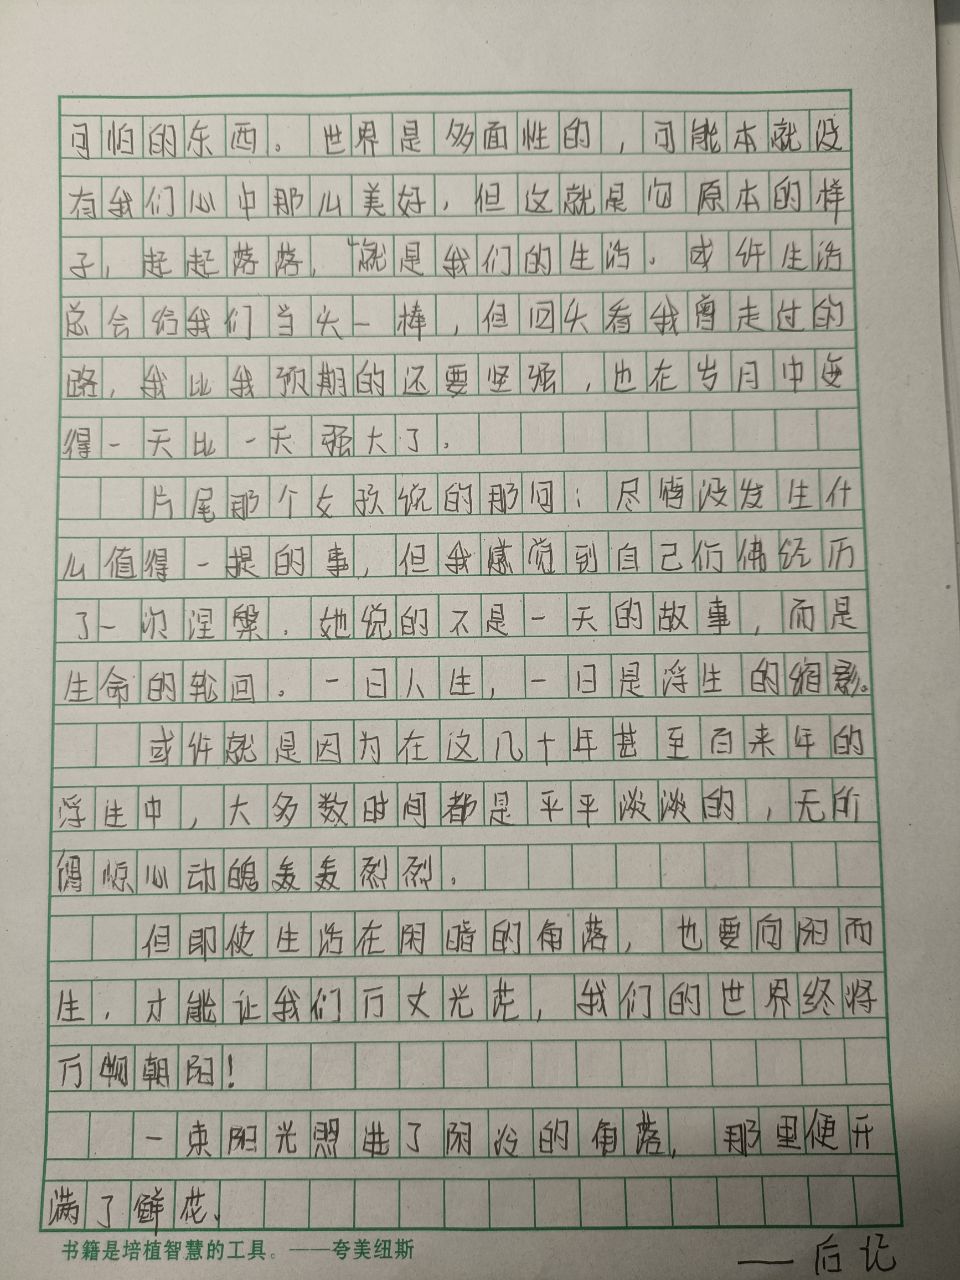 可怕的东西。世界是多面性的，可能本就没
有我们心中那么美好，但这就是它原本的样
子，起起落落，就是我们的生活。或许生活
总会给我们当头一棒，但回头看我曾走过的
路，我比我预期的还要坚强，也在岁月中变
得一天比一天强大了。
片尾那个女孩说的那句：尽管没发生什
么值得一提的事，但我感觉到自己仿佛经历
了一次涅槃。她说的不是一天的故事，而是
生命的轮回。一日人生，一日是浮生的缩影。
或许就是因为在这几十年甚至百来年的
浮生中，大多数时间都是平平淡淡的，无所
得惊心动魄轰轰烈烈。
但即使生活在阴暗的角落，也要向阳而
生，才能让我们万丈光芒，我们的世界终将
万物朝阳！
一束阳光照进了阴冷的角落，那里便开
满了鲜花。
书籍是培植智慧的工具。——夸美纽斯
——后记